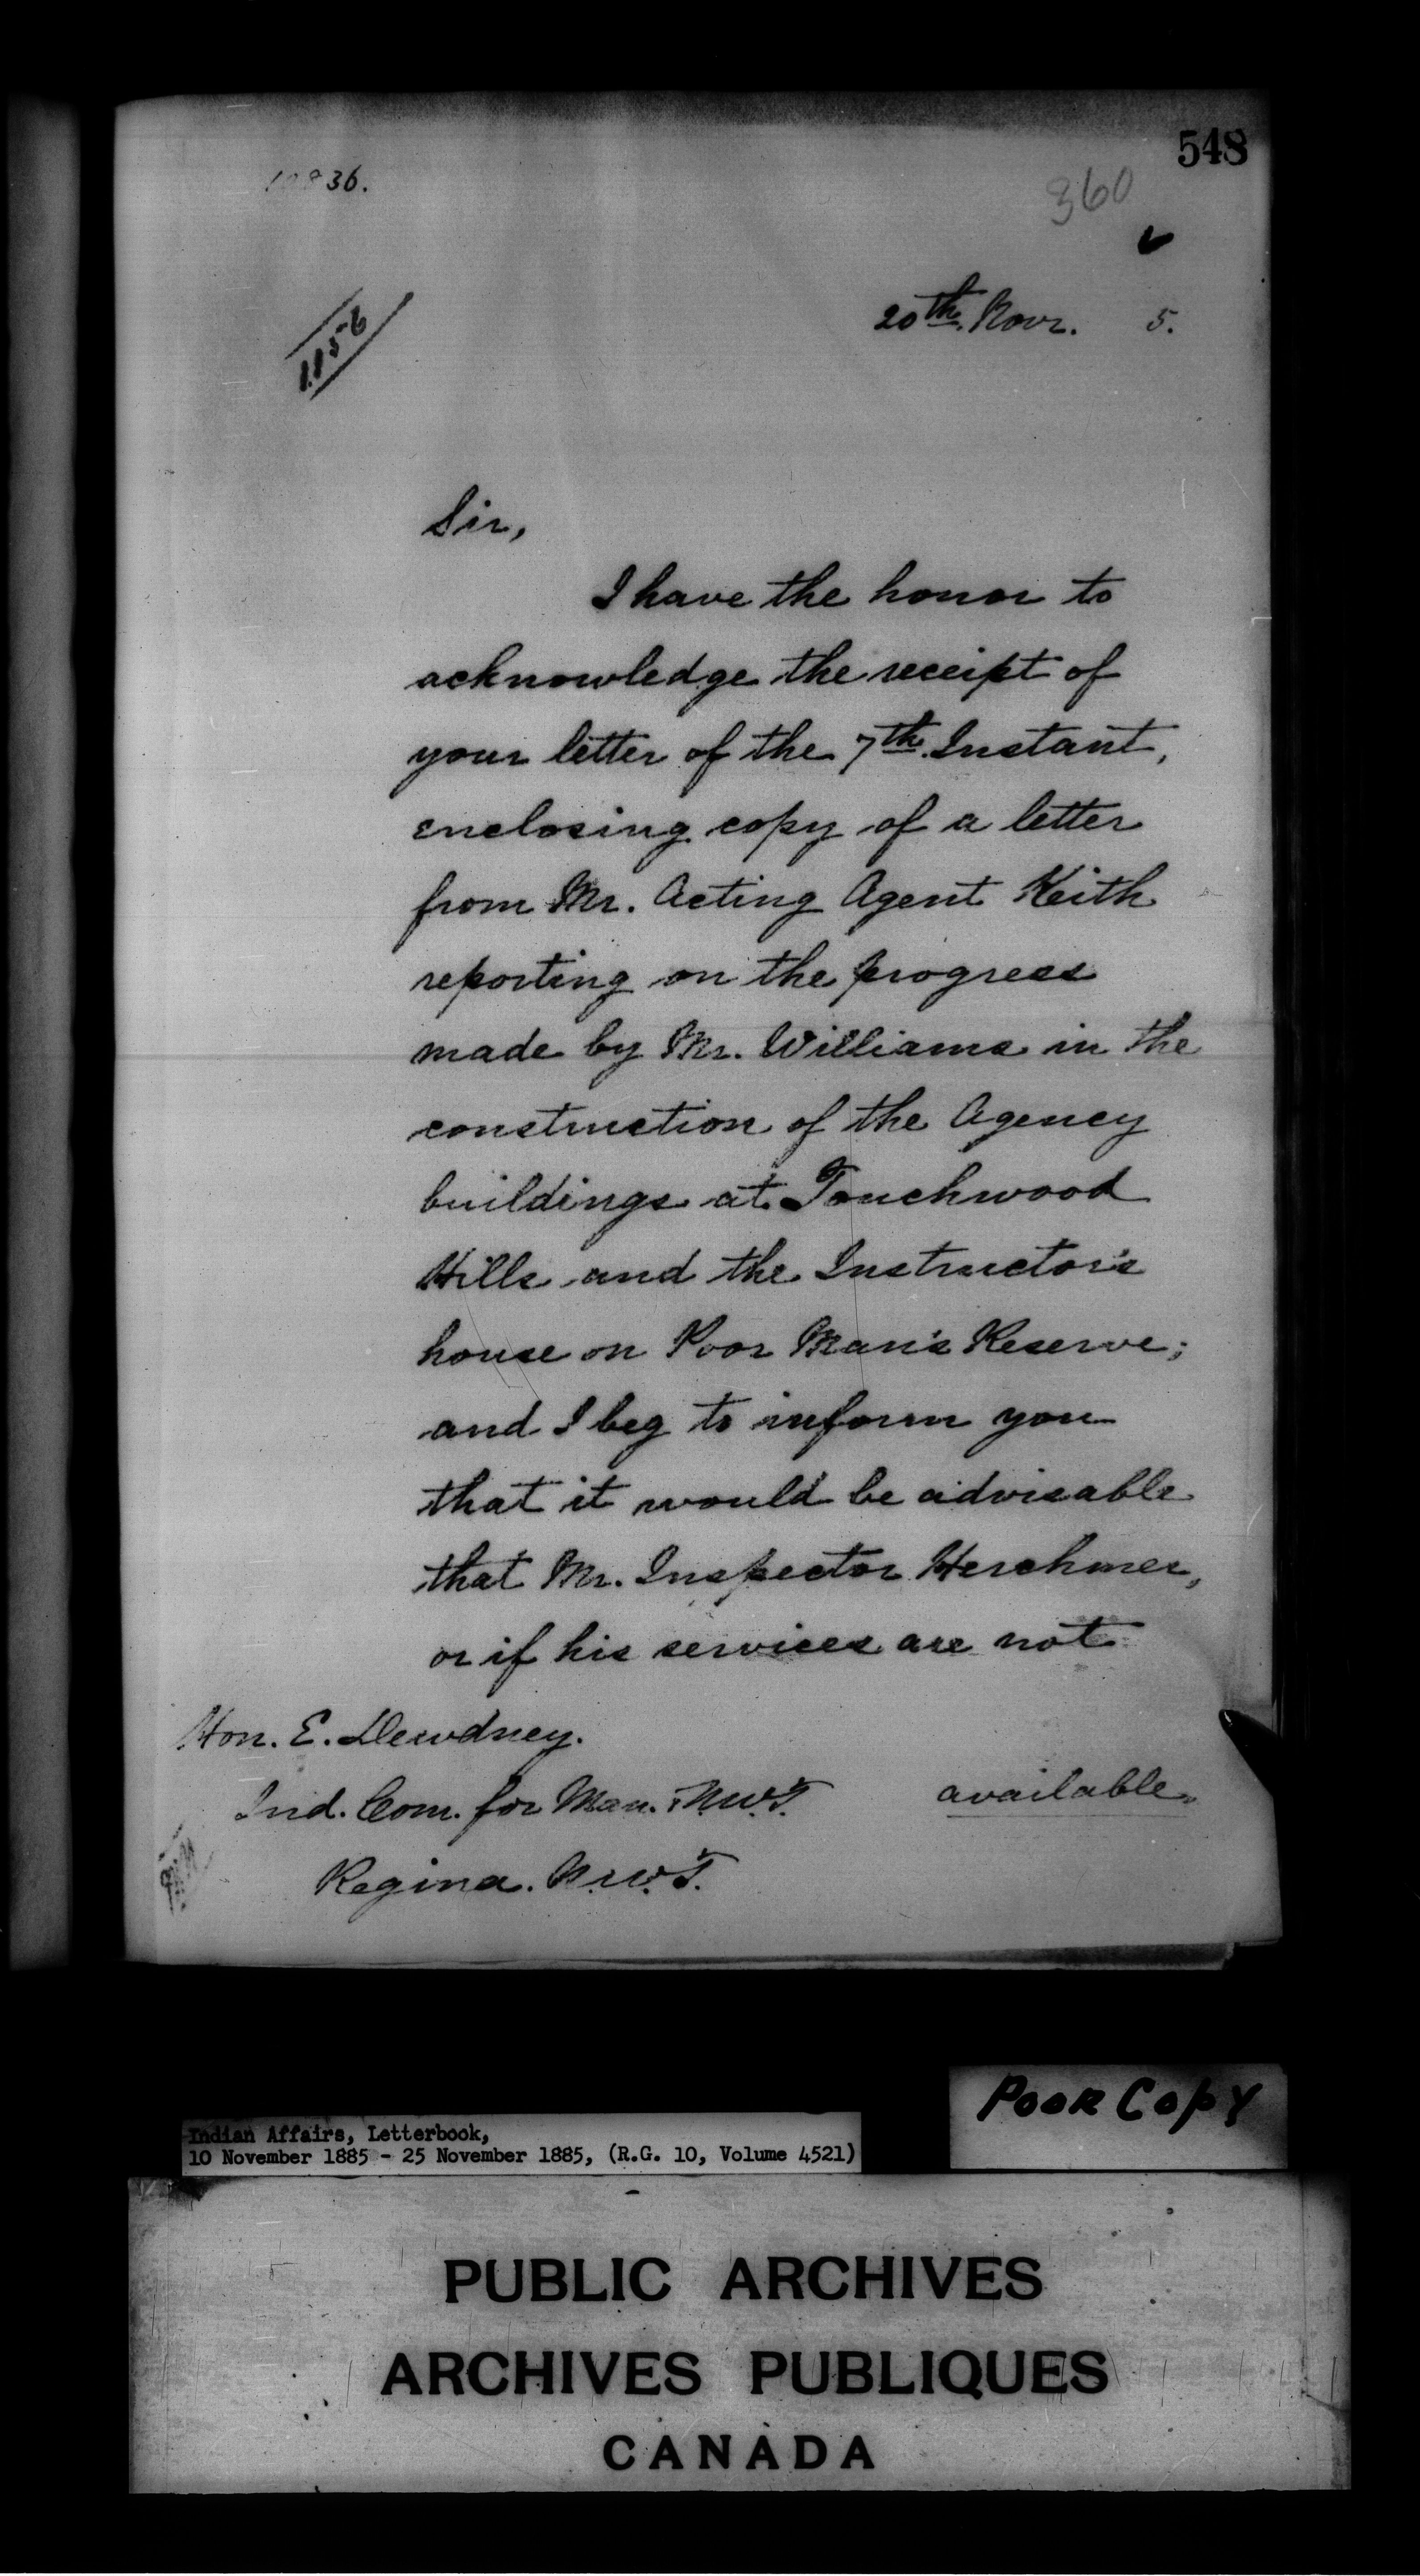 548
36.
360
1156
20th. Novr. 5.
Sir,
I have the honor to
acknowledge the receipt of
your letter of the 7th. Instant,
enclosing copy of a letter
from Mr. Acting Agent Keith
reporting on the progress
made by Mr. Williams in the
construction of the Agency
buildings at Touchwood
Hills and the Instructor's
house on Poor Man's Reserve;
and I beg to inform you
that it would be advisable
that Mr. Inspector Herchmer,
or if his services are not
available
Hon. E. Dewdney.
Ind. Com. for Man. & N.W.T.
Regina. N.W.T.
Poor Copy
Indian Affairs, Letterbook,
10 November 1885 - 25 November 1885, (R.G. 10, Volume 4521)
PUBLIC ARCHIVES
ARCHIVES PUBLIQUES
CANADA